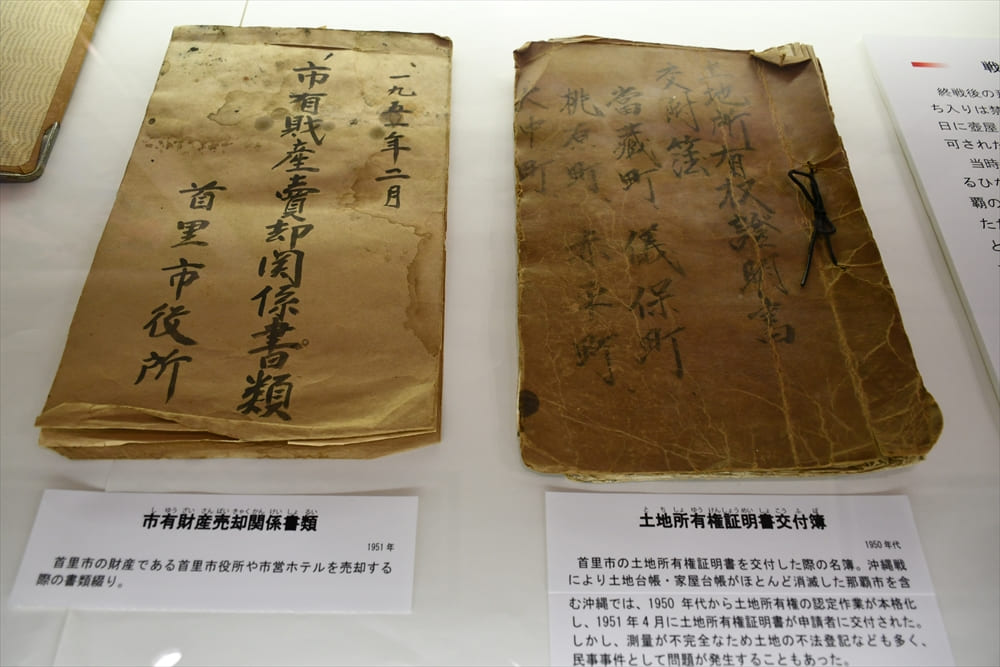 一九五一年二月
市有財産賣却関係書類
首里市役所
土地所有权證明書
交附簿
當蔵町 儀保町
桃原町 赤平町
大中町
しゆうざいさんばいきゃくかんけいしょるい
市有財産売却関係書類
1951年
首里市の財産である首里市役所や市営ホテルを売却する
際の書類綴り。
とちしょゆうけんしょうめいしょこうふぼ
土地所有権証明書交付簿
1950年代
首里市の土地所有権証明書を交付した際の名簿。沖縄戦
により土地台帳・家屋台帳がほとんど消滅した那覇市を含
む沖縄では、1950年代から土地所有権の認定作業が本格化
し、1951年4月に土地所有権証明書が申請者に交付された。
しかし、測量が不完全なため土地の不法登記なども多く、
民事事件として問題が発生することもあった。
戦
終戦後の
ち入りは禁
日に壺屋
可された
当時
るひな
覇の
ただ
と